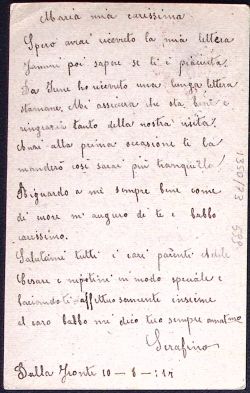 Maria mia carissima
Spero avrai ricevuto la mia lettera
fammi poi sapere se ti è piaciuta.
Da Irene ho ricevuto una lunga lettera
stamane, Mi assicura che sta bene e
ringrazia tanto della nostra visita.
Anzi alla prima occasione te la
manderò così sarai più tranquilla!
Riguardo a me sempre bene come
di cuore mi auguro di te e babbo
carissimo.
Salutami tutti i cari parenti Adele
Cesare e nipotini in modo speciale e
baciandoti affettuosamente insieme
al caro babbo mi dico tuo sempre amatmo
Serafino
Dalla fronte 10-8-17